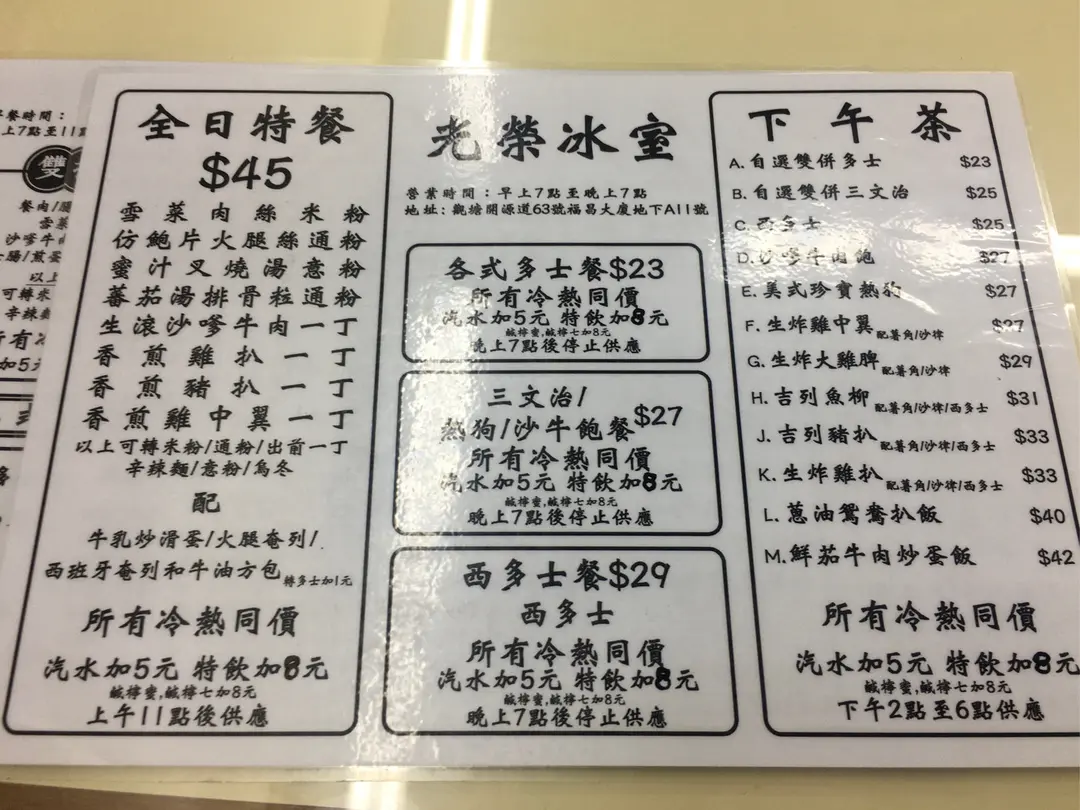 早餐時間：
上7點至11點
雙
餐肉/腿
沙嗲牛肉
腸/煎蛋
以上
可轉米
辛辣麵
加5元
全日特餐
$45
雪菜肉絲米粉
仿鮑片火腿絲通粉
蜜汁叉燒湯意粉
蕃茄湯排骨粒通粉
生滾沙嗲牛肉一丁
香煎雞扒一丁
香煎豬扒一丁
香煎雞中翼一丁
以上可轉米粉/通粉/出前一丁
辛辣麵/意粉/烏冬
配
牛乳炒滑蛋/火腿奄列/
西班牙奄列和牛油方包 轉多士加1元
所有冷熱同價
汽水加5元 特飲加8元
鹹檸蜜,鹹檸七加8元
上午11點後供應
光榮冰室
營業時間：早上7點至晚上7點
地址：觀塘開源道63號福昌大廈地下A11號
各式多士餐$23
所有冷熱同價
汽水加5元 特飲加8元
鹹檸蜜,鹹檸七加8元
晚上7點後停止供應
三文治/
熱狗/沙牛飽餐 $27
所有冷熱同價
汽水加5元 特飲加8元
鹹檸蜜,鹹檸七加8元
晚上7點後停止供應
西多士餐$29
西多士
所有冷熱同價
汽水加5元 特飲加8元
鹹檸蜜,鹹檸七加8元
晚上7點後停止供應
下午茶
A.自選雙併多士 $23
B.自選雙併三文治 $25
C.西多士 $25
D.沙嗲牛肉飽 $27
E.美式珍寶熱狗 $27
F.生炸雞中翼 配薯角/沙律 $27
G.生炸大雞脾 配薯角/沙律 $29
H.吉列魚柳 配薯角/沙律/西多士 $31
J.吉列豬扒 配薯角/沙律/西多士 $33
K.生炸雞扒 配薯角/沙律/西多士 $33
L.蔥油鴛鴦扒飯 $40
M.鮮茄牛肉炒蛋飯 $42
所有冷熱同價
汽水加5元 特飲加8元
鹹檸蜜,鹹檸七加8元
下午2點至6點供應